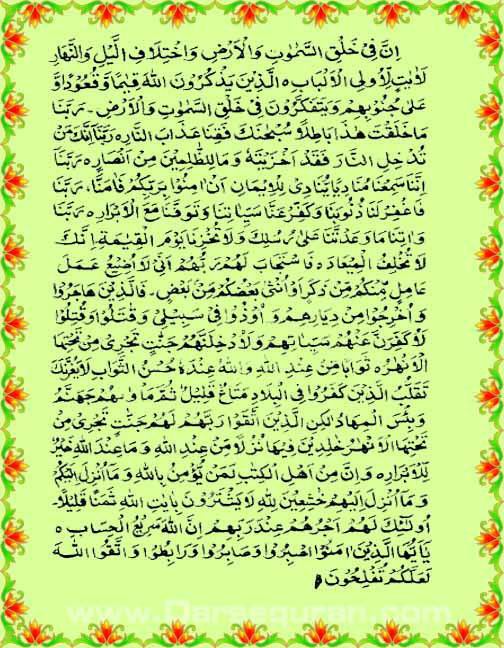 اِنَّ فِیْ خَلْقِ السَّمٰوٰتِ وَالْاَرْضِ وَاخْتِلَافِ الَّیْلِ وَالنَّهَارِ
لَاٰیٰتٍ لِّاُولِی الْاَلْبَابِ ہ الَّذِیْنَ یَذْکُرُوْنَ اللّٰهَ قِیٰمًا وَّقُعُوْدًا وَّ
عَلٰی جُنُوْبِهِمْ وَیَتَفَکَّرُوْنَ فِیْ خَلْقِ السَّمٰوٰتِ وَالْاَرْضِ۔ رَبَّنَا
مَا خَلَقْتَ هٰذَا بَاطِلًا سُبْحٰنَکَ فَقِنَا عَذَابَ النَّارِ ہ رَبَّنَا اِنَّکَ مَنْ
تُدْخِلِ النَّارَ فَقَدْ اَخْزَیْتَهٗ وَمَا لِلظّٰلِمِیْنَ مِنْ اَنْصَارٍ ہ رَبَّنَا
اِنَّنَا سَمِعْنَا مُنَادِیًا یُّنَادِیْ لِلْاِیْمَانِ اَنْ اٰمِنُوْا بِرَبِّکُمْ فَاٰمَنَّا، رَبَّنَا
فَاغْفِرْ لَنَا ذُنُوْبَنَا وَکَفِّرْ عَنَّا سَیِّاٰتِنَا وَتَوَفَّنَا مَعَ الْاَبْرَارِ ہ رَبَّنَا
وَاٰتِنَا مَا وَعَدْتَّنَا عَلٰی رُسُلِکَ وَلَا تُخْزِنَا یَوْمَ الْقِیٰمَةِ، اِنَّکَ
لَا تُخْلِفُ الْمِیْعَادَ ہ فَاسْتَجَابَ لَهُمْ رَبُّهُمْ اَنِّیْ لَا اُضِیْعُ عَمَلَ
عَامِلٍ مِّنْکُمْ مِّنْ ذَکَرٍ اَوْ اُنْثٰی بَعْضُکُمْ مِّنْ بَعْضٍ۔ فَالَّذِیْنَ هَاجَرُوْا
وَاُخْرِجُوْا مِنْ دِیَارِهِمْ وَاُوْذُوْا فِیْ سَبِیْلِیْ وَقٰتَلُوْا وَقُتِلُوْا
لَاُکَفِّرَنَّ عَنْهُمْ سَیِّاٰتِهِمْ وَلَاُدْخِلَنَّهُمْ جَنّٰتٍ تَجْرِیْ مِنْ تَحْتِهَا
الْاَنْهٰرُ ہ ثَوَابًا مِّنْ عِنْدِ اللّٰهِ وَاللّٰهُ عِنْدَهٗ حُسْنُ الثَّوَابِ لَا یَغُرَّنَّکَ
تَقَلُّبُ الَّذِیْنَ کَفَرُوْا فِی الْبِلَادِ مَتَاعٌ قَلِیْلٌ ثُمَّ مَاْوٰىهُمْ جَهَنَّمُ
وَبِئْسَ الْمِهَادُ لٰکِنِ الَّذِیْنَ اتَّقَوْا رَبَّهُمْ لَهُمْ جَنّٰتٌ تَجْرِیْ مِنْ
تَحْتِهَا الْاَنْهٰرُ خٰلِدِیْنَ فِیْهَا نُزُلًا مِّنْ عِنْدِ اللّٰهِ وَمَا عِنْدَ اللّٰهِ خَیْرٌ
لِّلْاَبْرَارِ ہ وَاِنَّ مِنْ اَهْلِ الْکِتٰبِ لَمَنْ یُّؤْمِنُ بِاللّٰهِ وَمَا اُنْزِلَ اِلَیْکُمْ
وَمَا اُنْزِلَ اِلَیْهِمْ خٰشِعِیْنَ لِلّٰهِ لَا یَشْتَرُوْنَ بِاٰیٰتِ اللّٰهِ ثَمَنًا قَلِیْلًا۔
اُولٰٓئِکَ لَهُمْ اَجْرُهُمْ عِنْدَ رَبِّهِمْ اِنَّ اللّٰهَ سَرِیْعُ الْحِسَابِ ہ
یٰاَیُّهَا الَّذِیْنَ اٰمَنُوا اصْبِرُوْا وَصَابِرُوْا وَرَابِطُوْا وَاتَّقُوا اللّٰهَ
لَعَلَّکُمْ تُفْلِحُوْنَ
www.Darsequran.com